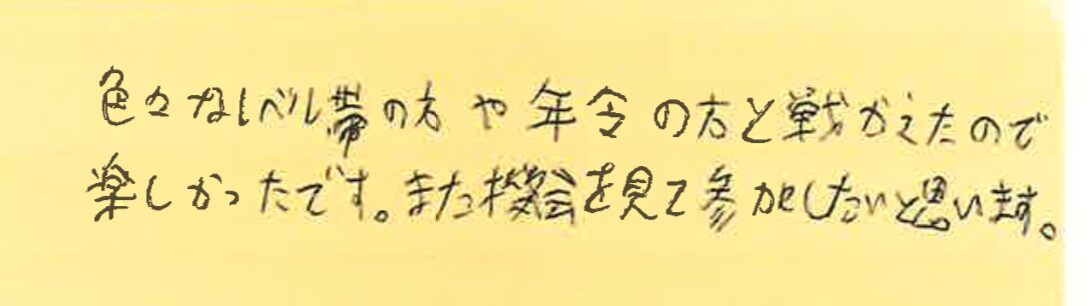 色々なレベル帯の方や年令の方と戦かえたので
楽しかったです。また機会を見て参加したいと思います。